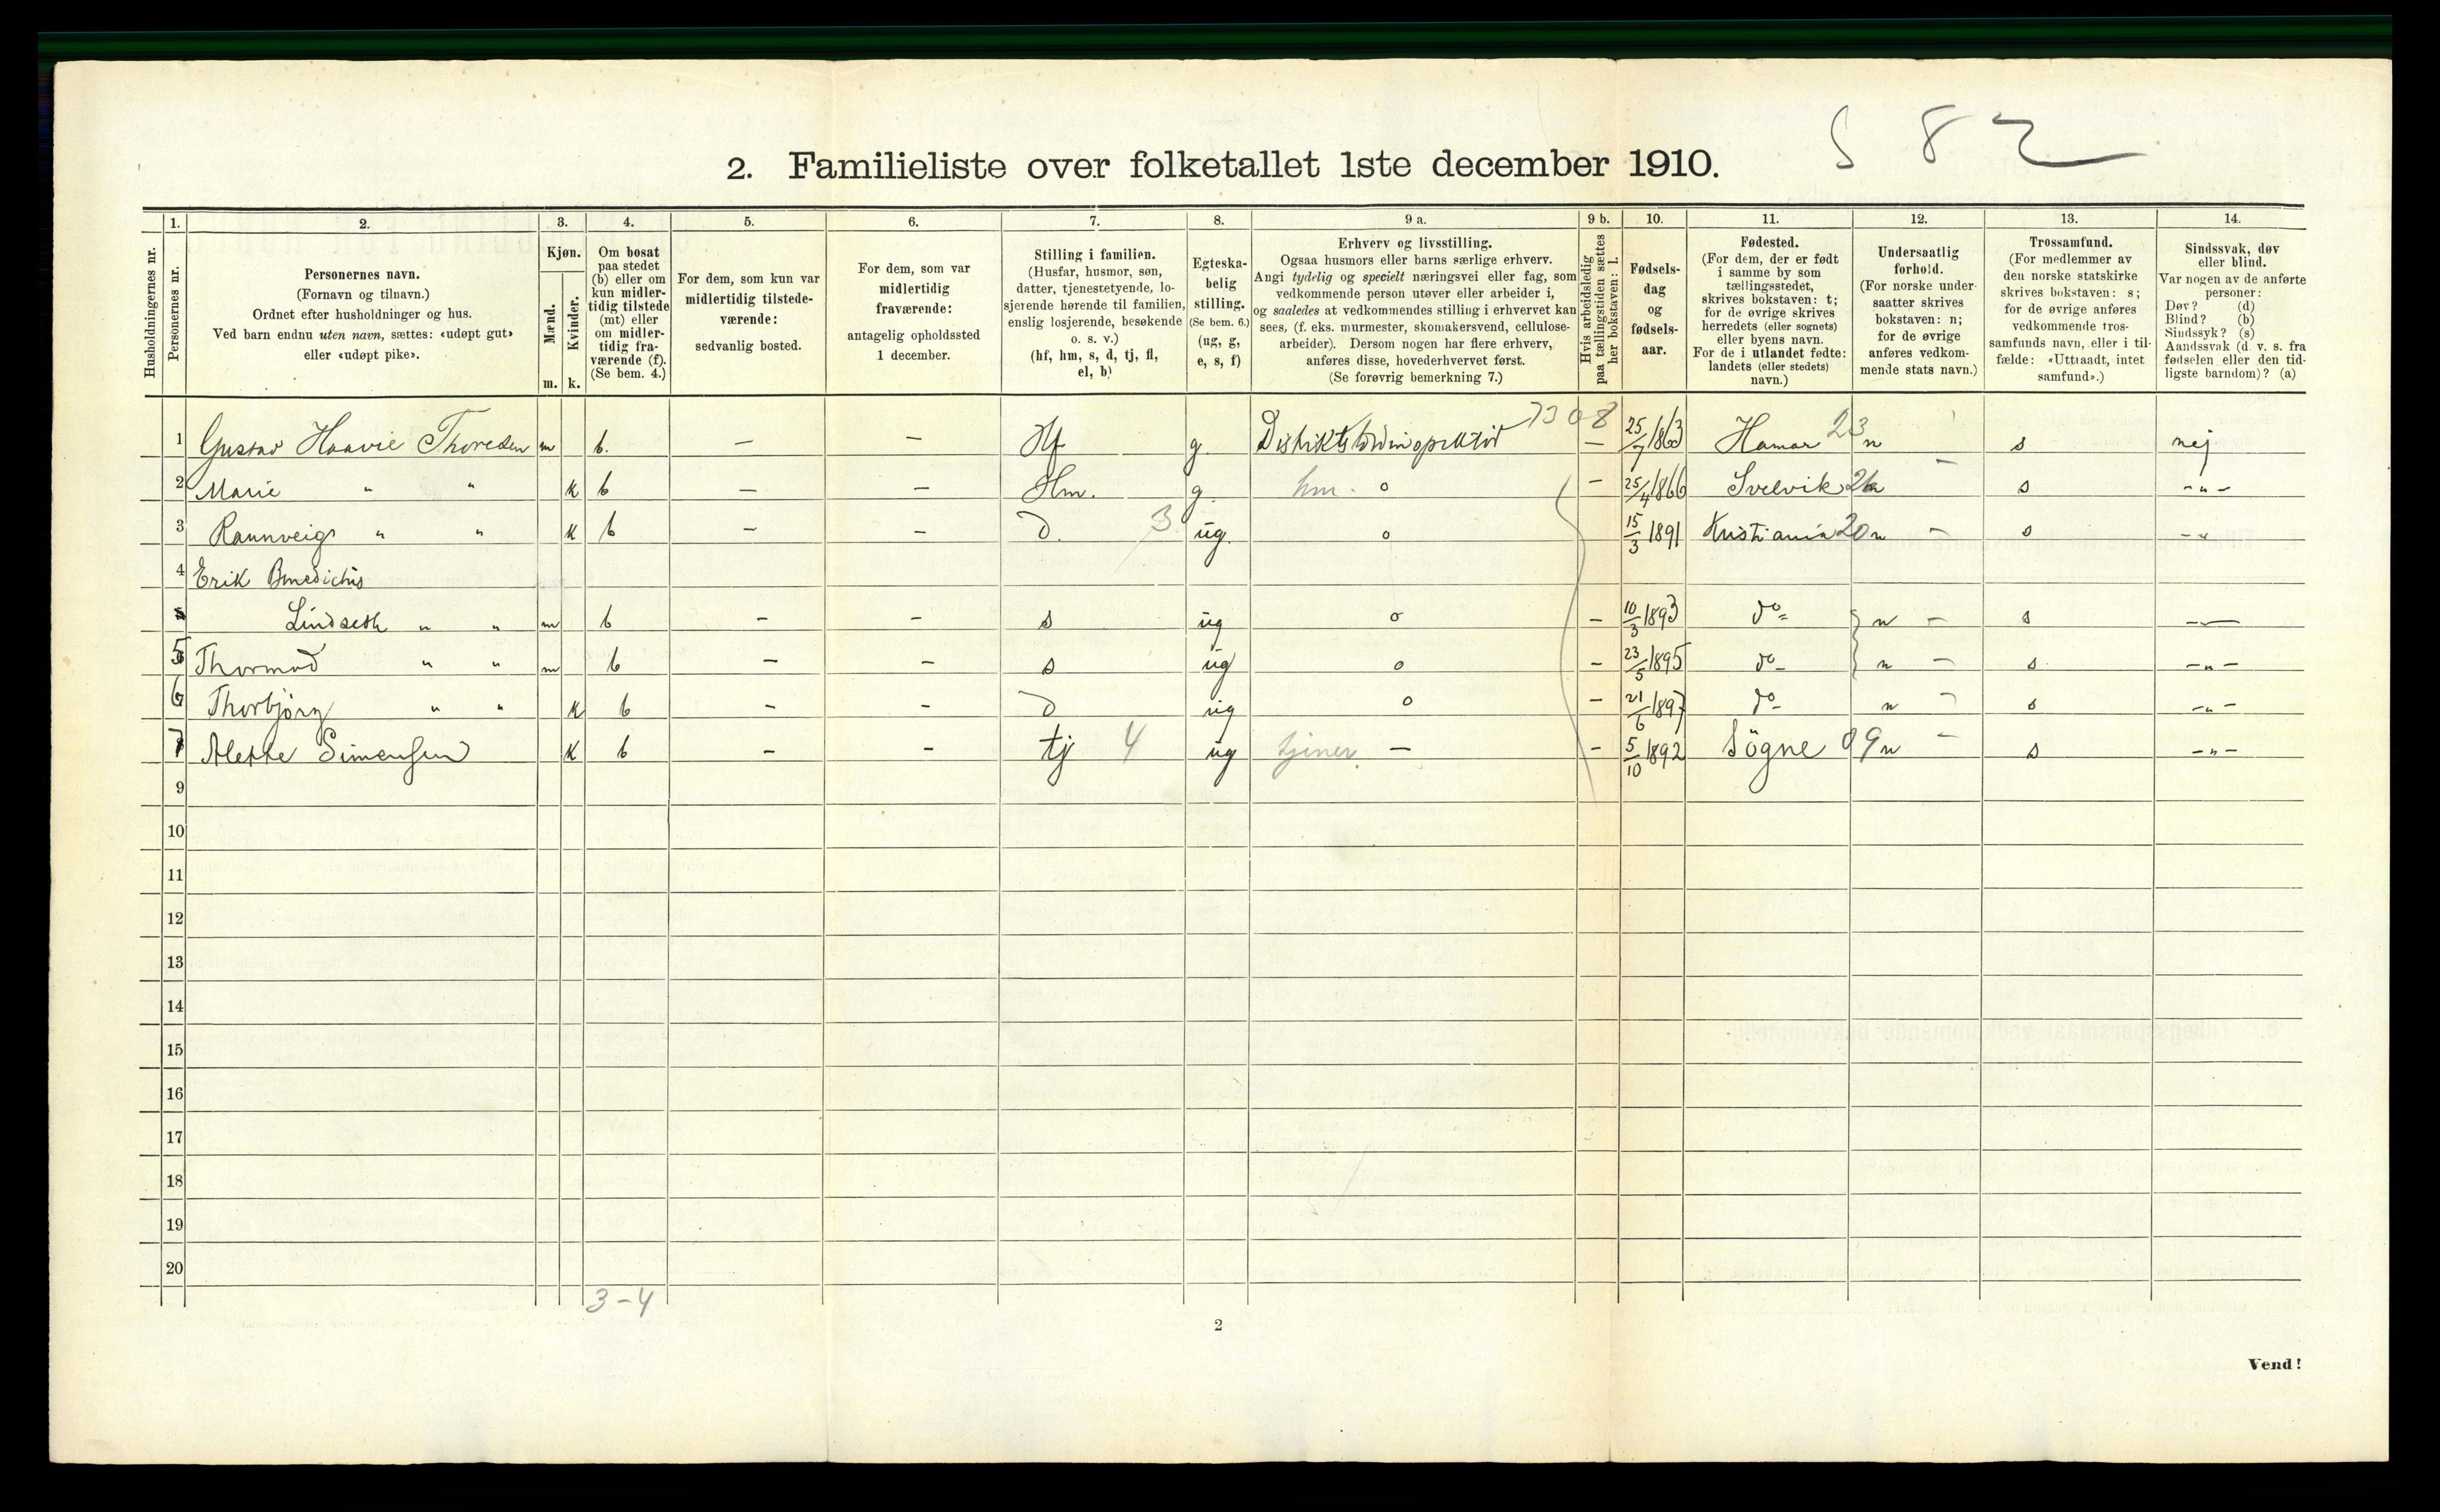 S 82
2. Familieliste over folketallet 1ste december 1910.
Husholdningernes nr.
1. Personernes nr.
2. Personernes navn. (Fornavn og tilnavn.) Ordnet efter husholdninger og hus. Ved barn endnu uten navn, sættes: «udøpt gut» eller «udøpt pike».
3. Kjøn. Mænd. m. Kvinder. k.
4. Om bosat paa stedet (b) eller om kun midlertidig tilstede (mt) eller om midlertidig fraværende (f). (Se bem. 4.)
5. For dem, som kun var midlertidig tilstedeværende: sedvanlig bosted.
6. For dem, som var midlertidig fraværende: antagelig opholdssted 1 december.
7. Stilling i familien. (Husfar, husmor, søn, datter, tjenestetyende, losjerende hørende til familien, enslig losjerende, besøkende o. s. v.) (hf, hm, s, d, tj, fl, el, b)
8. Egteskabelig stilling. (Se bem. 6.) (ug, g, e, s, f)
9 a. Erhverv og livsstilling. Ogsaa husmors eller barns særlige erhverv. Angi tydelig og specielt næringsvei eller fag, som vedkommende person utøver eller arbeider i, og saaledes at vedkommendes stilling i erhvervet kan sees, (f. eks. murmester, skomakersvend, cellulosearbeider). Dersom nogen har flere erhverv, anføres disse, hovederhvervet først. (Se forøvrig bemerkning 7.)
9 b. Hvis arbeidsledig paa tællingstiden sættes her bokstaven: l.
10. Fødselsdag og fødselsaar.
11. Fødested. (For dem, der er født i samme by som tællingsstedet, skrives bokstaven: t; for de øvrige skrives herredets (eller sognets) eller byens navn. For de i utlandet fødte: landets (eller stedets) navn.)
12. Undersaatlig forhold. (For norske undersaatter skrives bokstaven: n; for de øvrige anføres vedkommende stats navn.)
13. Trossamfund. (For medlemmer av den norske statskirke skrives bokstaven: s; for de øvrige anføres vedkommende trossamfunds navn, eller i tilfælde: «Uttraadt, intet samfund».)
14. Sindssvak, døv eller blind. Var nogen av de anførte personer: Døv? (d) Blind? (b) Sindssyk? (s) Aandssvak (d. v. s. fra fødselen eller den tidligste barndom)? (a)
1 Gustav Haavie Thoresen m b. — — Hf g. 7308 — 25/7 1863 Hamar 23 n s nej
2 Marie " " k b — — Hm. g. hm. o — 25/4 1866 Svelvik s -"-
3 Rannveig " " k b — — D. 3 ug. o 15/3 1891 Kristiania 20 n — s -"-
4 Erik Benedictus
Lindseth " " m b — — s ug o — 10/3 1893 do n — s —
5 Thormod " " m b — — s ug o — 23/5 1895 do n — s. -"-
6 Thorbjørg " " k b — — D ug o — 21/6 1897 do n — s -"-
7 Alette Simensen k b — — tj 4 ug tjener — — 5/10 1892 Sögne 09 n — s -"-
9
10
11
12
13
14
15
16
17
18
19
20
3-4
2
Vend!